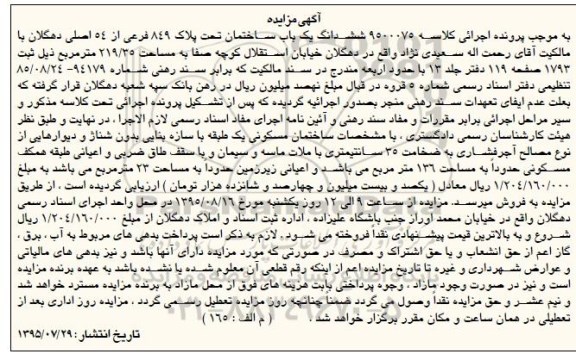 آگهی مزایده
به موجب پرونده اجرائی کلاسه ۹۵۰۰۰۷۵ ششدانگ یک باب ساختمان تحت پلاک ۸۴۹ فرعی از ۵۴ اصلی دهگلان با
مالکیت آقای رحمت اله سعیدی نژاد واقع در دهگلان خیابان استقلال کوچه صفا به مساحت ۲۱۹/۳۵ مترمربع ذیل ثبت
۱۷۹۳ صفحه ۱۱۹ دفتر جلد ۱۳ با حدود اربعه مندرج در سند مالکیت که برابر سند رهنی شماره ۹۴۱۷۹- ۸۵/۰۸/۲۴
تنظیمی دفتر اسناد رسمی شماره ۵ قروه در قبال مبلغ نهصد میلیون ریال در رهن بانک سپه شعبه دهگلان قرار گرفته که
بعلت عدم ایفای تعهدات سند رهنی منجر بصدور اجرائیه گردیده که پس از تشکیل پرونده اجرائی تحت کلاسه مذکور و
سیر مراحل اجرائی برابر مقررات و مفاد سند رهنی و آئین نامه اجرای مفاد اسناد رسمی لازم الاجرا ، در نهایت و طبق نظر
هیئت کارشناسان رسمی دادگستری ، با مشخصات ساختمان مسکونی یک طبقه با سازه بنایی بدون شناژ و دیوارهایی از
نوع مصالح آجرفشاری به ضخامت ۳۵ سانتیمتری با ملات ماسه و سیمان و با سقف طاق ضربی و اعیانی طبقه همکف
مسکونی حدوداً به مساحت ۱۳۶ متر مربع می باشد و اعیانی زیرزمین حدوداً به مساحت ۲۳ مترمربع می باشد به مبلغ
۱/۲۰۴/۱۶۰/۰۰۰ ریال معادل ( یکصد و بیست میلیون و چهارصد و شانزده هزار تومان ) ارزیابی گردیده است . از طریق
مزایده به فروش میرسد. مزایده از ساعت ۹ الی ۱۲ روز یکشنبه مورخ ۱۳۹۵/۰۸/۱۶ در محل واحد اجرای اسناد رسمی
دهگلان واقع در خیابان محمد اورراز جنب باشگاه علیزاده ، اداره ثبت اسناد و املاک دهگلان از مبلغ ۱/۲۰۴/۱۶۰/۰۰۰ ریال
شروع و به بالاترین قیمت پیشنهادی نقداً فروخته می شود . لازم به ذکر است پرداخت بدهی های مربوط به آب ، برق ،
گاز اعم از حق انشعاب و یا حق اشتراک و مصرف در صورتی که مورد مزایده دارای آنها باشد و نیز بدهی های مالیاتی
و عوارض شهرداری و غیره تا تاریخ مزایده اعم از اینکه رقم قطعی آن معلوم شده یا نشده باشد به عهده برنده مزایده
است و نیز در صورت وجود مازاد ، وجوه پرداختی بابت هزینه های فوق از محل مازاد به برنده مزایده مسترد خواهد شد
و نیم عشر و حق مزایده نقداً وصول می گردد ضمناً چنانچه روز مزایده تعطیل رسمی گردد ، مزایده روز اداری بعد از
تعطیلی در همان ساعت و مکان مقرر برگزار خواهد شد . ( م الف : ۱۶۵ )
تاریخ انتشار : ۱۳۹۵/۰۷/۲۹